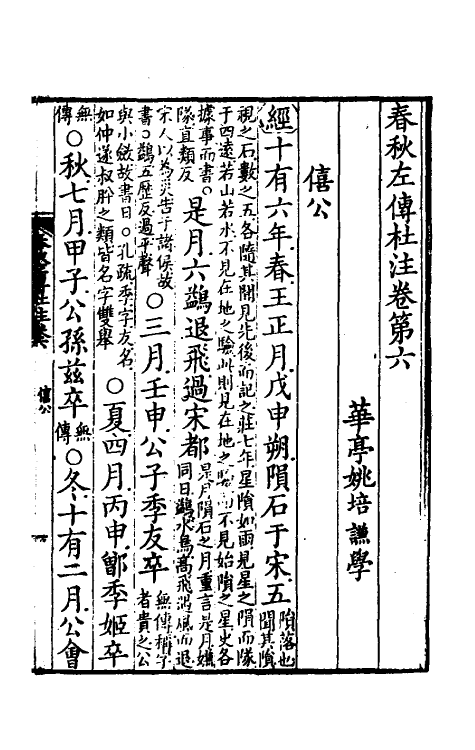 春秋左傳杜注卷第六
華亭姚培謙學
僖公
經十有六年春王正月戊申朔隕石于宋五
隕落也
聞其隕
視之石數之五各隨其聞見先後而記之莊七年星隕如雨見星之隕而隊
于四遠若山若水不見在地之驗此則見在地之驗而不見始隕之星史各
據事而書○
隊直類反
是月六鷁退飛過宋都
是月隕石之月重言是月嫌
同日鷁水鳥高飛遇風而退
宋人以為災告于諸侯故
書○鷁五歷反過平聲
○三月壬申公子季友卒
無傳稱字
者貴之公
與小斂故書日○孔疏季字友名
如仲遂叔肸之類皆名字雙舉
○夏四月丙申鄫季姬卒
無
傳
○秋七月甲子公孫茲卒
無
傳
○冬十有二月公會
僖公